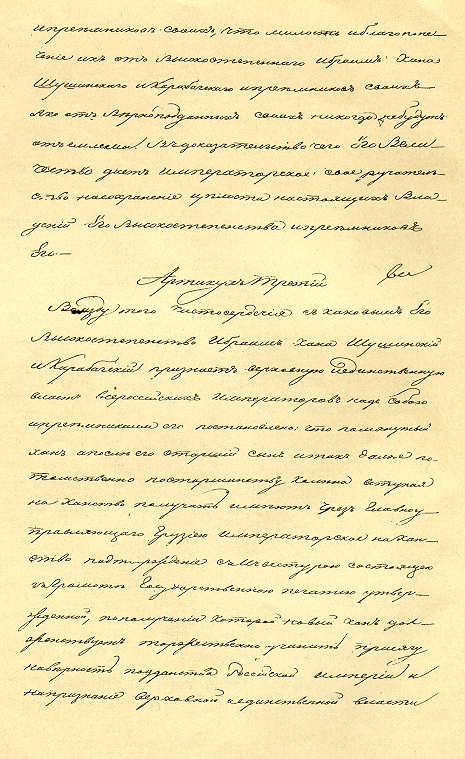 и преемников своих, что милость и благопопе-
чение их от Высокостепеннаго Ибраим Хана
Шушинскаго и Карабагскаго и преемников своих
яко от верноподданных своих никогда не будут
отъемлемы. В доказательство чего Его Вели-
чество дает Императорское свое ручатель-
ство на сохранение целости настоящих вла-
дений Его Высокостепенства и преемников
Его.—
Артикул Третий
Во мзду того чистосердечия с каковым Его
Высокостепенство Ибраим Хан Шушинский
и Карабагский признает верховную и единственную
власть Всероссийских Императоров над собою
и преемниками его постановлено: что помянутый
хан а после его старший сын и так далее по-
томственно по старшинству колена вступая
на Ханство получать имеют чрез Главноу-
правляющаго Грузиею Императорское на Хан-
ство подтверждение с инвеститурою состоящею
в Грамоте Государственною печатию утвер-
жденной, по получении которой новый Хан дол-
женствует торжественно учинить присягу
на верность подданства Российской Империи и
на признание верховной и единственной власти